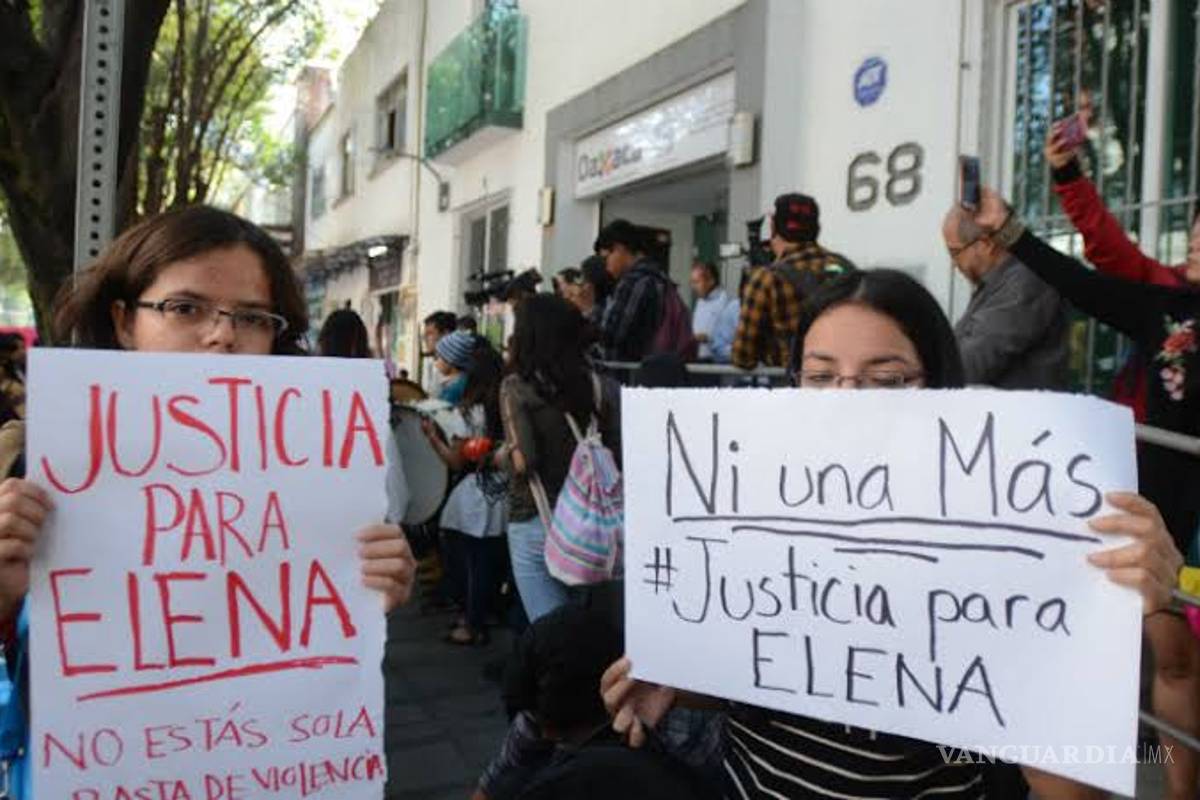 JUSTICIA
PARA
ELENA
NO ESTÁS SOLA
BASTA DE VIOLENCIA
Ni una Más
#Justicia para
ELENA
Oaxaca
68
ADT
VANGUARDIA|MX